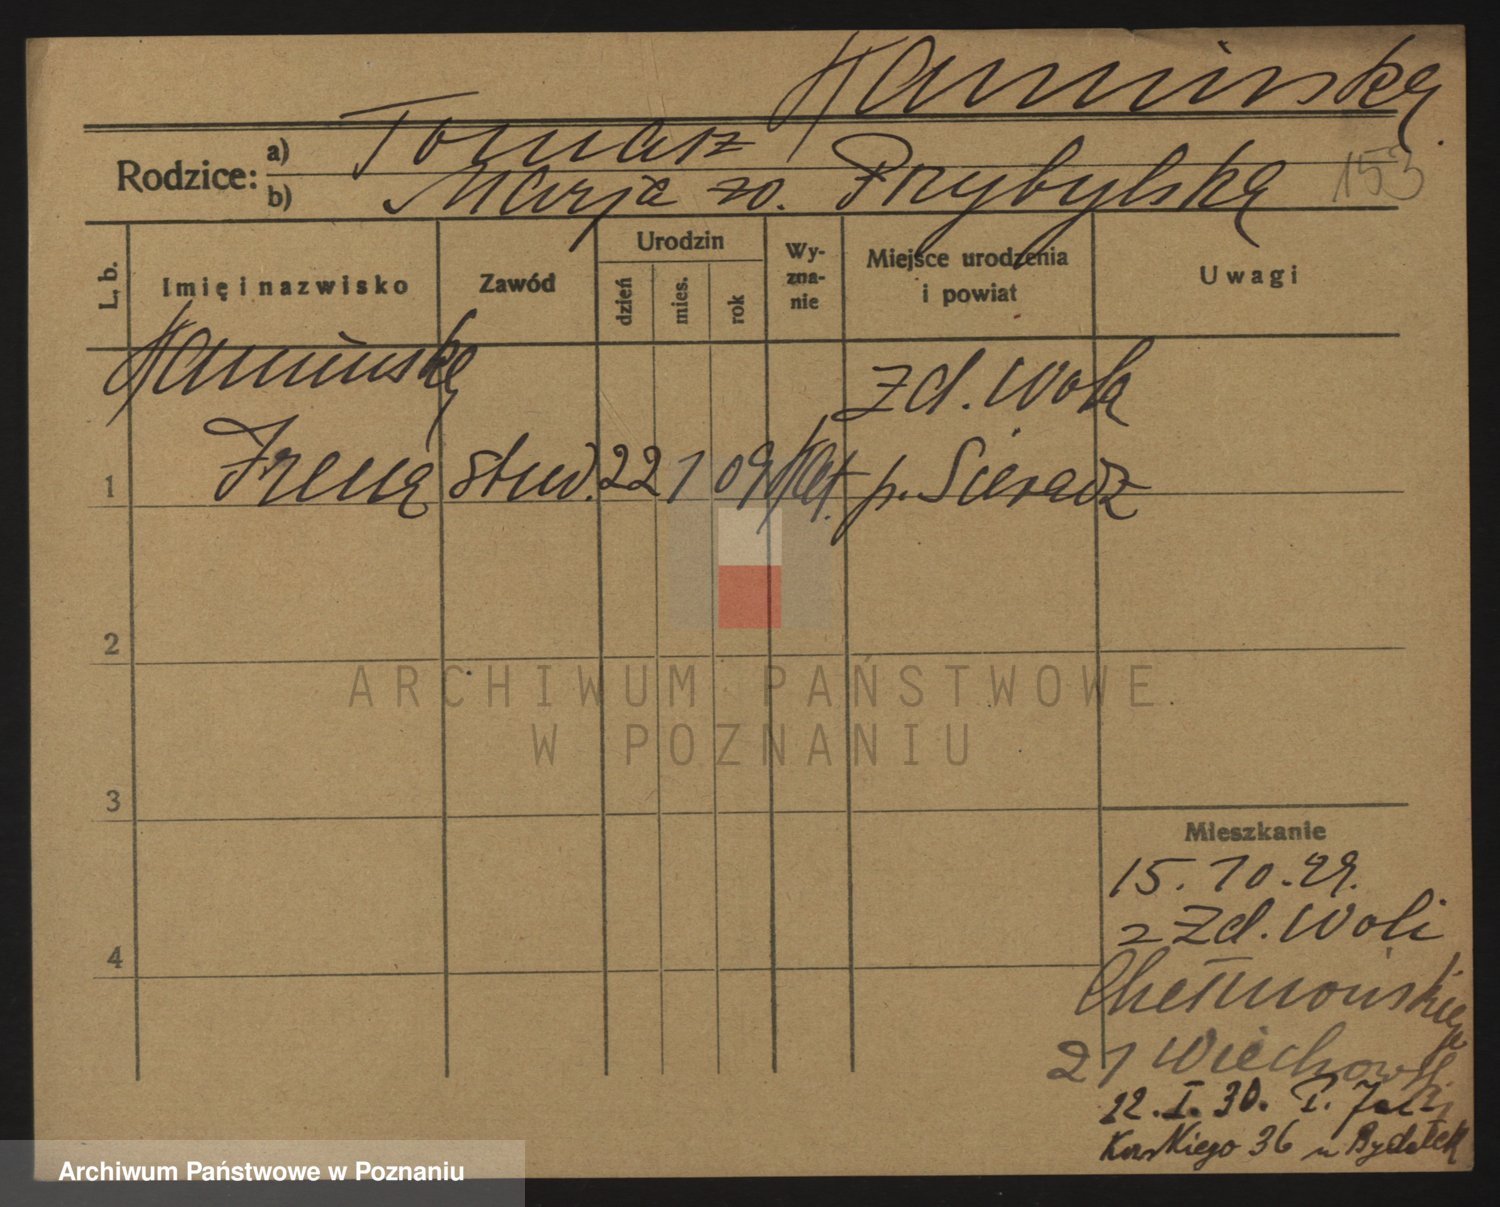 Kamińska
Rodzice: a) Tomasz
b) Marja zo. Przybylska
153
L. b.
Imię i nazwisko
Zawód
Urodzin
dzień
mies.
rok
Wy-
zna-
nie
Miejsce urodzenia
i powiat
Uwagi
Kamińska Zd. Wola
1 Irena stud. 22 1 09 kat. p. Sieradz
2
ARCHIWUM PAŃSTWOWE
W POZNANIU
3
Mieszkanie
15. 10. 29.
z Zd. Woli
4
Chełmońskiego
21 Wiechowski
22. I. 30. P. Jac-
kowskiego 36 u
Archiwum Państwowe w Poznaniu